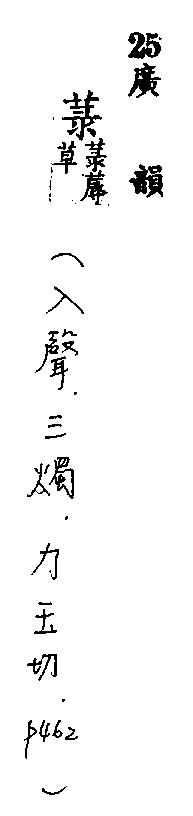 25 廣韻
菉 菉蓐草
(入聲.三燭.力玉切.p462)